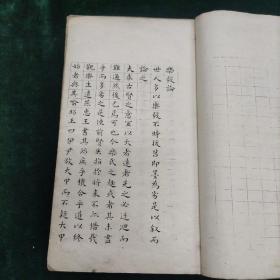 樂毅論
世人多以樂毅不時拔莒即墨為劣是以叙而
論之
夫求古賢之意宜以大者遠者先之必迂迴而
難通然後已焉可也今樂氏之趣或者其未盡
乎而多劣之是使前賢失指於將來不亦惜哉
觀樂生遺燕惠王書其殆庶乎機合乎道以終
始者與其喻昭王曰伊尹放大甲而不疑大甲